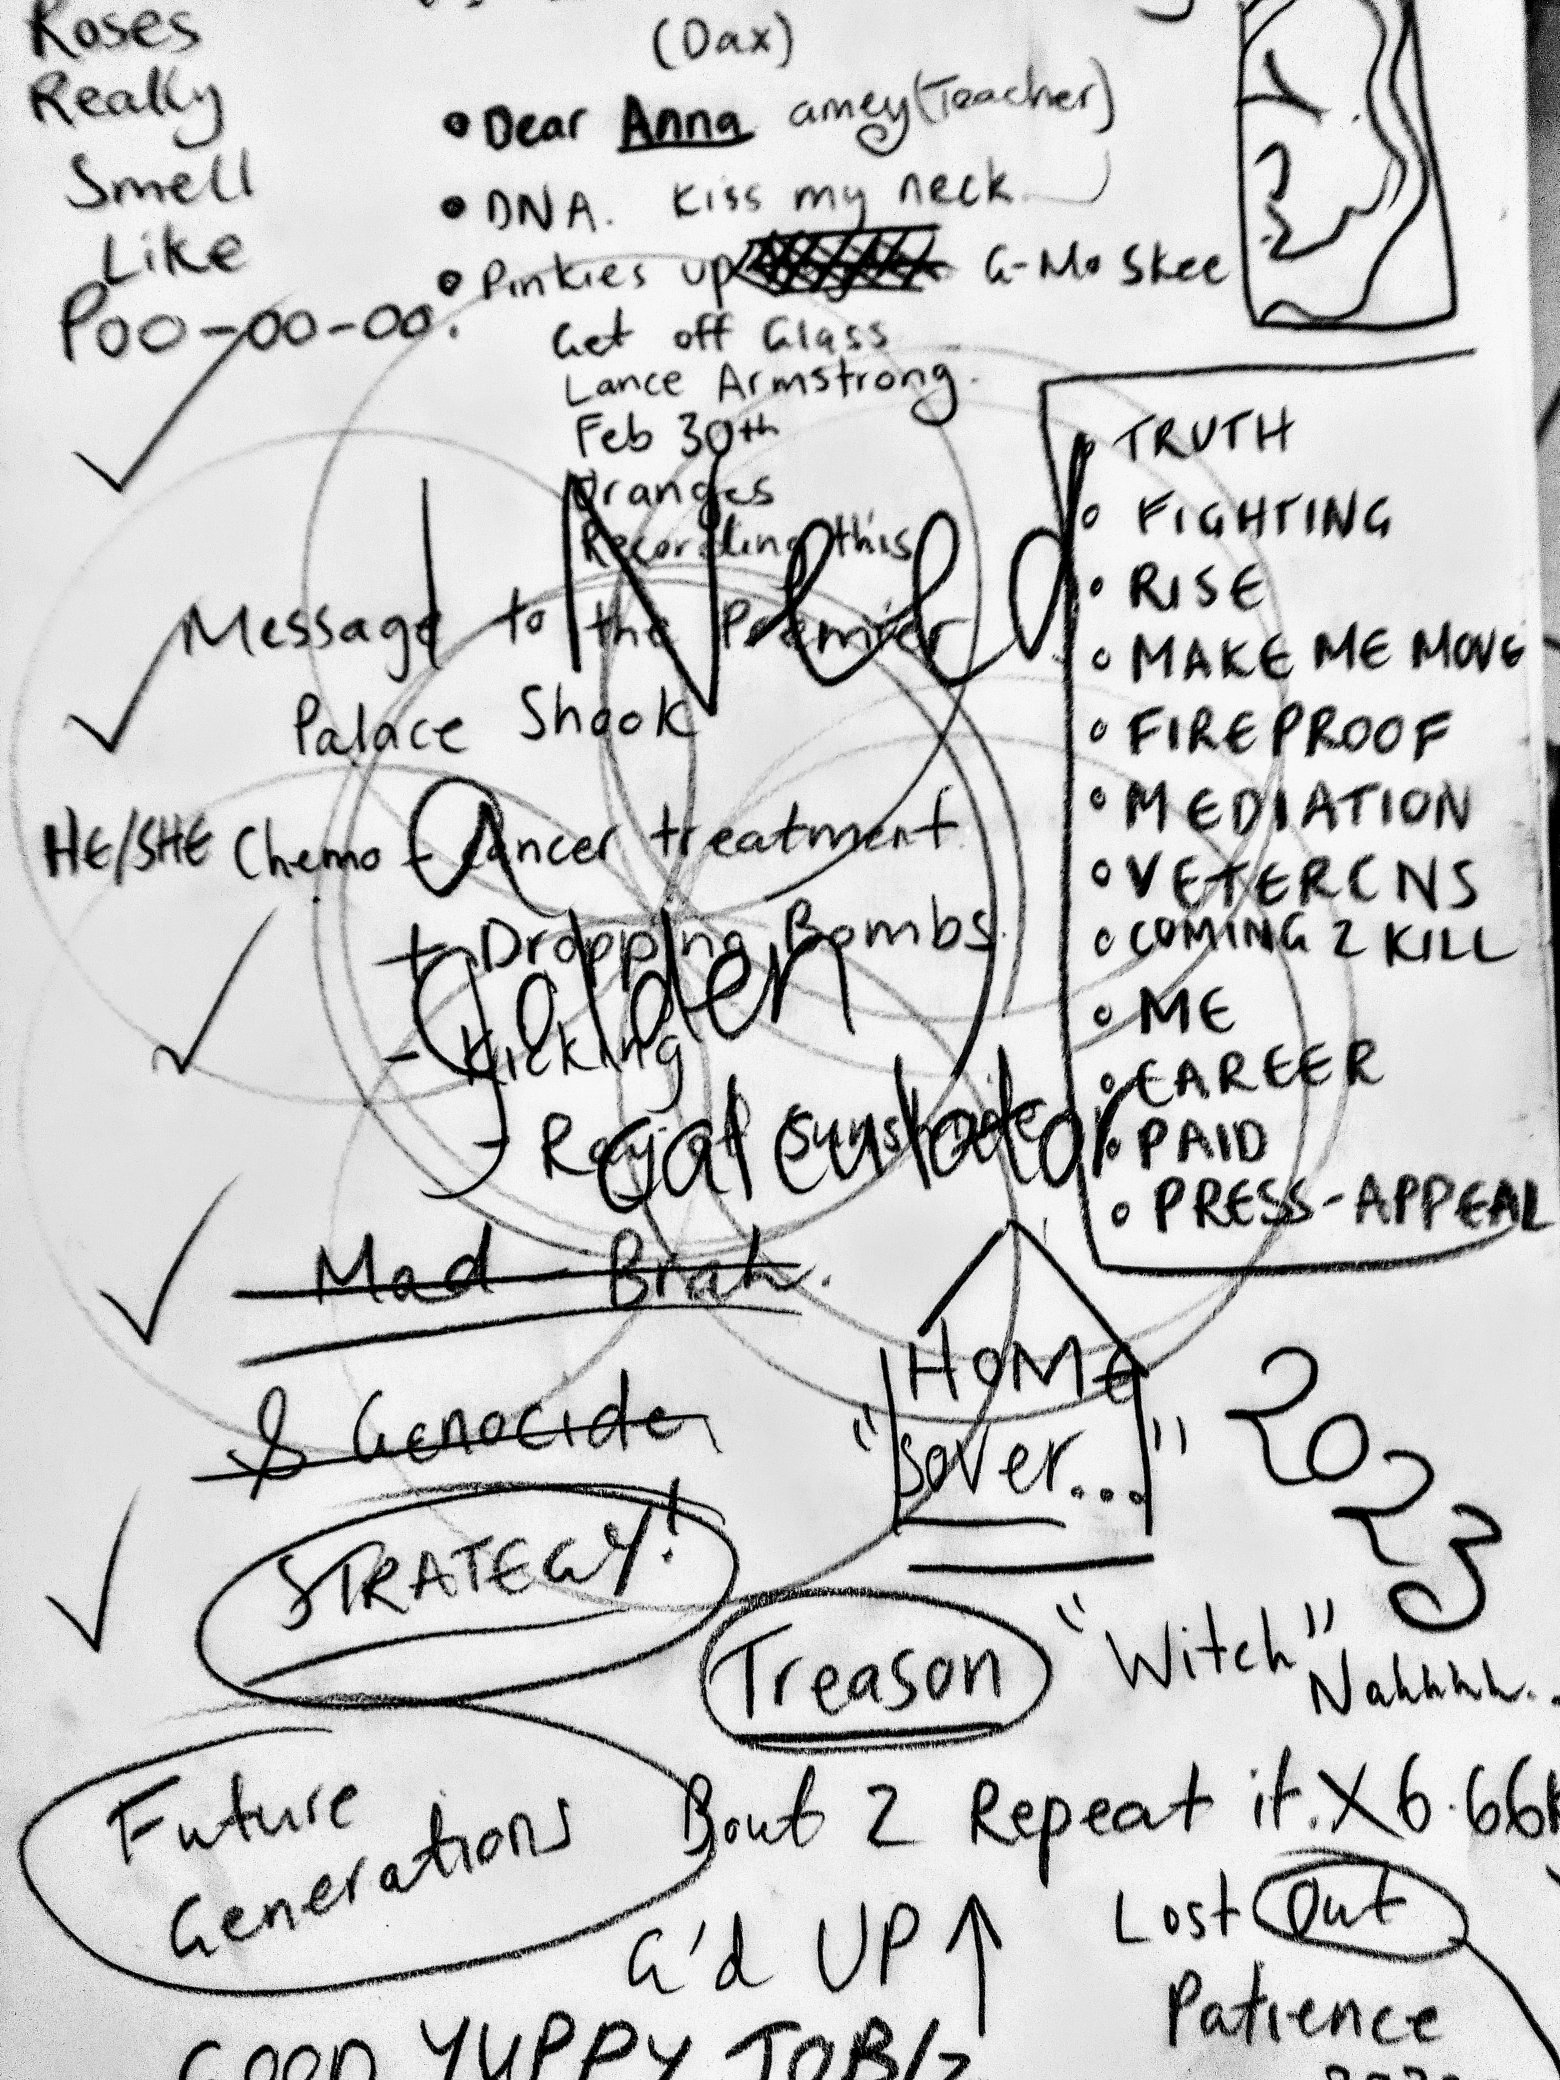 Roses
Really
Smell
Like
Poo-oo-oo.
(Dax)
• Dear Anna amey (Teacher)
• DNA. Kiss my neck
• Pinkies up G-Mo Skee
Get off Glass
Lance Armstrong.
Feb 30th
Oranges
Recording this
I Need
a
Golden
calculator
Message to the Premier
Palace Shook
HE/SHE Chemo - Cancer treatment.
+ Dropping Bombs.
- Kicking
- Ray of Sunshine
Mad - Brah.
& Genocide
STRATEGY!
• TRUTH
• FIGHTING
• RISE
• MAKE ME MOVE
• FIREPROOF
• MEDIATION
• VETERCNS
• COMING 2 KILL
• ME
• CAREER
• PAID
• PRESS-APPEAL
"HOME
sover..."
2023
Treason
"Witch"
Nahhhh..
Future
Generations
Bout 2 Repeat it. X6.66k
G'd UP
Lost Out
Patience
GOOD YUPPY JOB/z